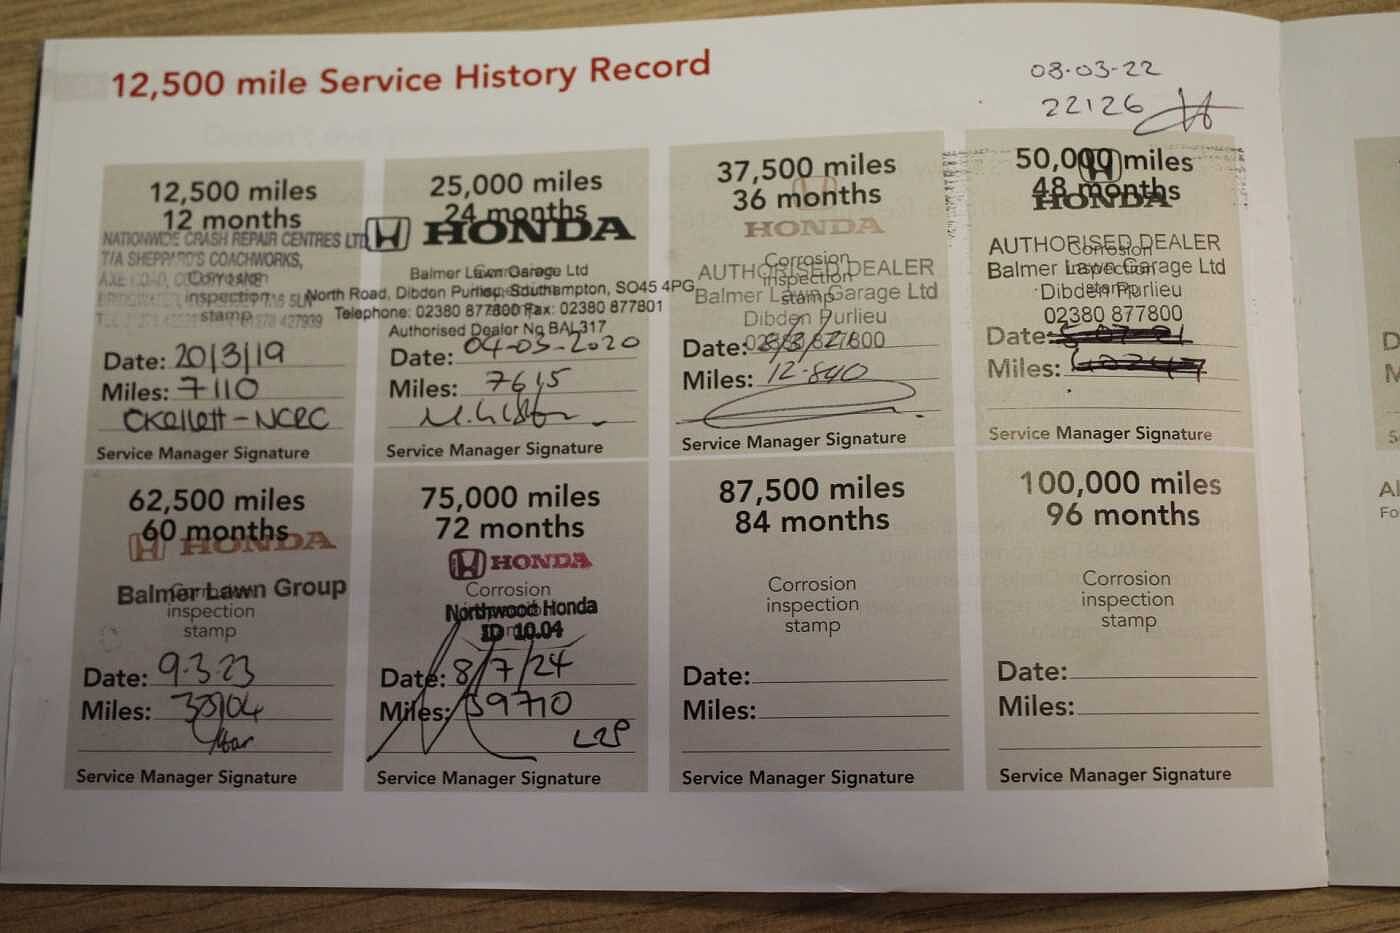 12,500 mile Service History Record
08-03-22
22126
12,500 miles
12 months
NATIONWIDE CRASH REPAIR CENTRES LTD
T/A SHEPPARD'S COACHWORKS,
Corrosion
inspection
stamp
427939
Date: 20/3/19
Miles: 7110
CKellett - NCRC
Service Manager Signature
25,000 miles
24 months
HONDA
Balmer Lawn Garage Ltd
North Road, Dibden Purlieu, Southampton, SO45 4PG
Telephone: 02380 877800 Fax: 02380 877801
Authorised Dealer No BAL317
Date: 04-03-2020
Miles: 7615
Service Manager Signature
37,500 miles
36 months
HONDA
Corrosion
inspection
stamp
AUTHORISED DEALER
Balmer Lawn Garage Ltd
Dibden Purlieu
02380 877800
Date: 8/3/21
Miles: 12-840
Service Manager Signature
50,000 miles
48 months
HONDA
Corrosion
inspection
stamp
AUTHORISED DEALER
Balmer Lawn Garage Ltd
Dibden Purlieu
02380 877800
Date:
Miles:
Service Manager Signature
62,500 miles
60 months
HONDA
Balmer Lawn Group
Corrosion
inspection
stamp
Date: 9.3.23
Miles:
Service Manager Signature
75,000 miles
72 months
HONDA
Corrosion
Northwood Honda
ID 10.04
Date: 8/7/24
Miles: 39710
Service Manager Signature
87,500 miles
84 months
Corrosion
inspection
stamp
Date:
Miles:
Service Manager Signature
100,000 miles
96 months
Corrosion
inspection
stamp
Date:
Miles:
Service Manager Signature